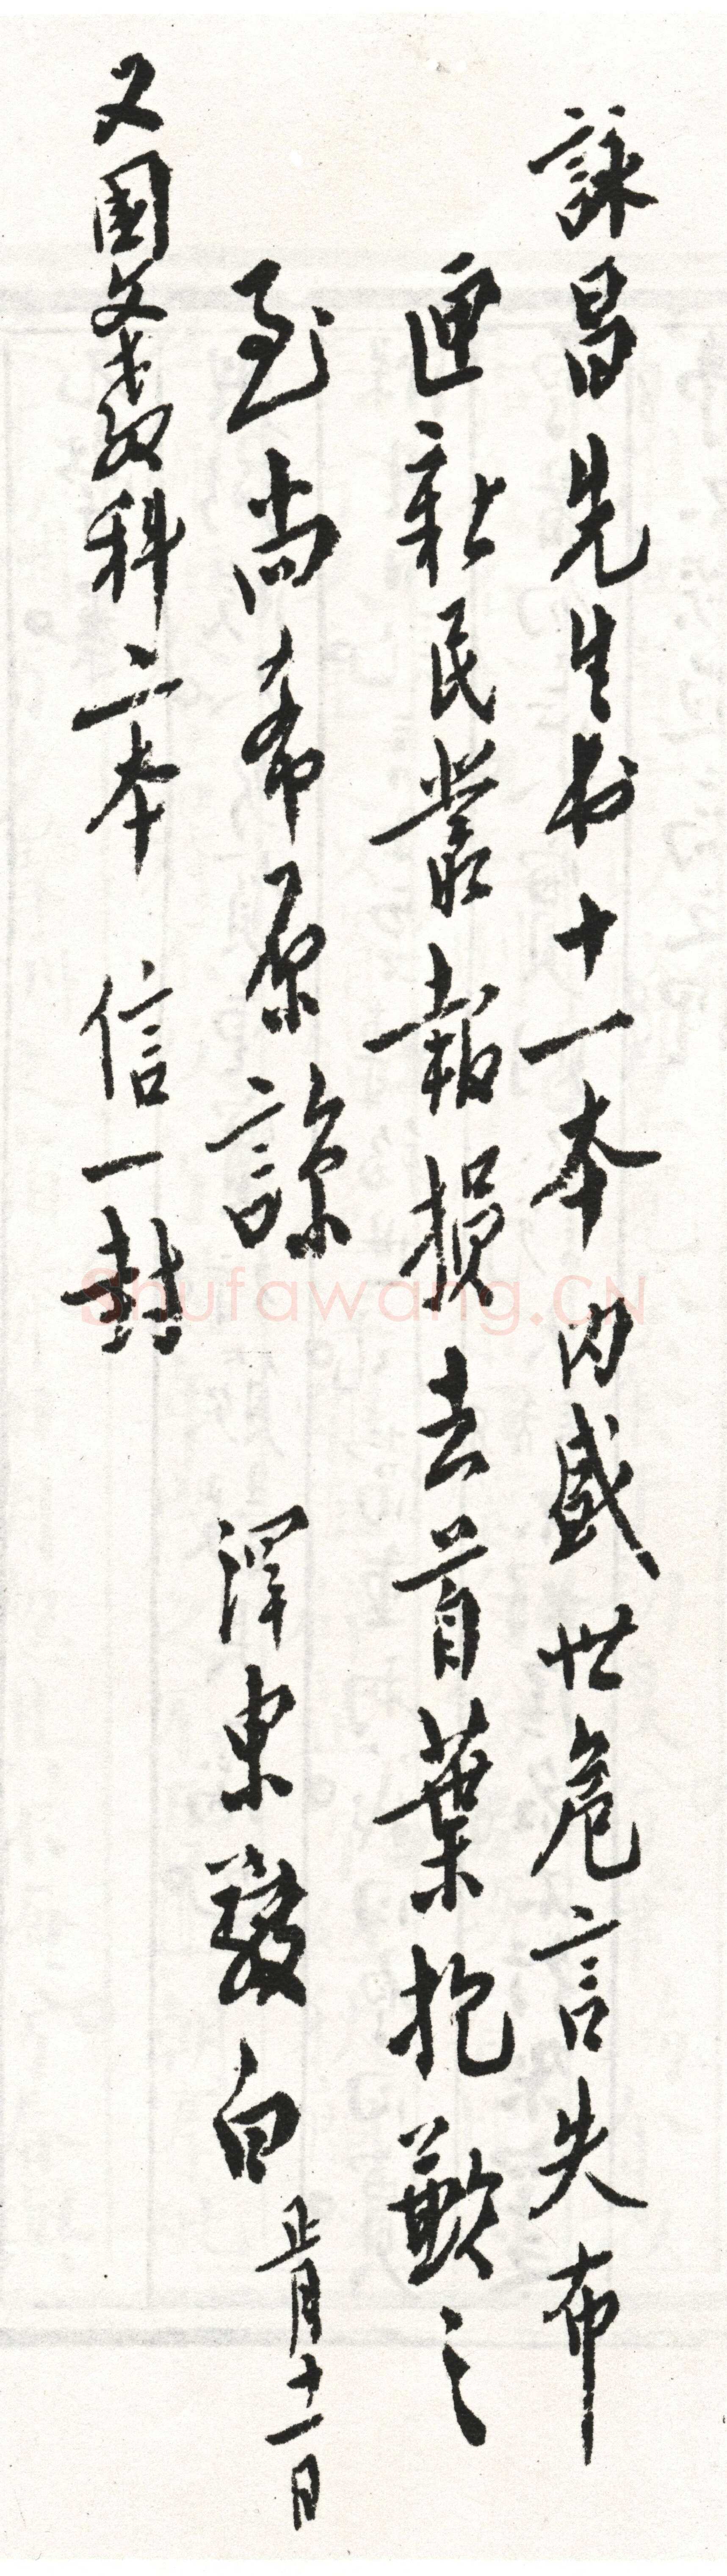 詠昌先生书十一本 内盛世危言失布
匣新民叢報損去首葉抱歉之
至尚希原諒 澤東敬白 正月十一日
又國文教科二本 信一封
Shufawang.CN